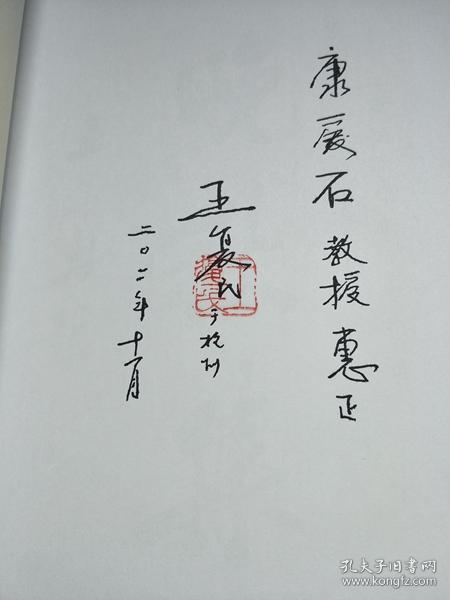 康爱石教授惠正
王复民
于杭州
二〇一一年十一月
孔夫子旧书网
www.kongfz.com